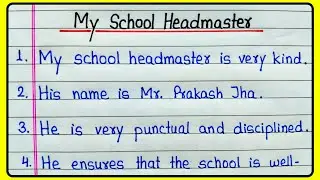 My School Headmaster
1. My school headmaster is very kind.
2. His name is Mr. Prakash Jha.
3. He is very punctual and disciplined.
4. He ensures that the school is well-